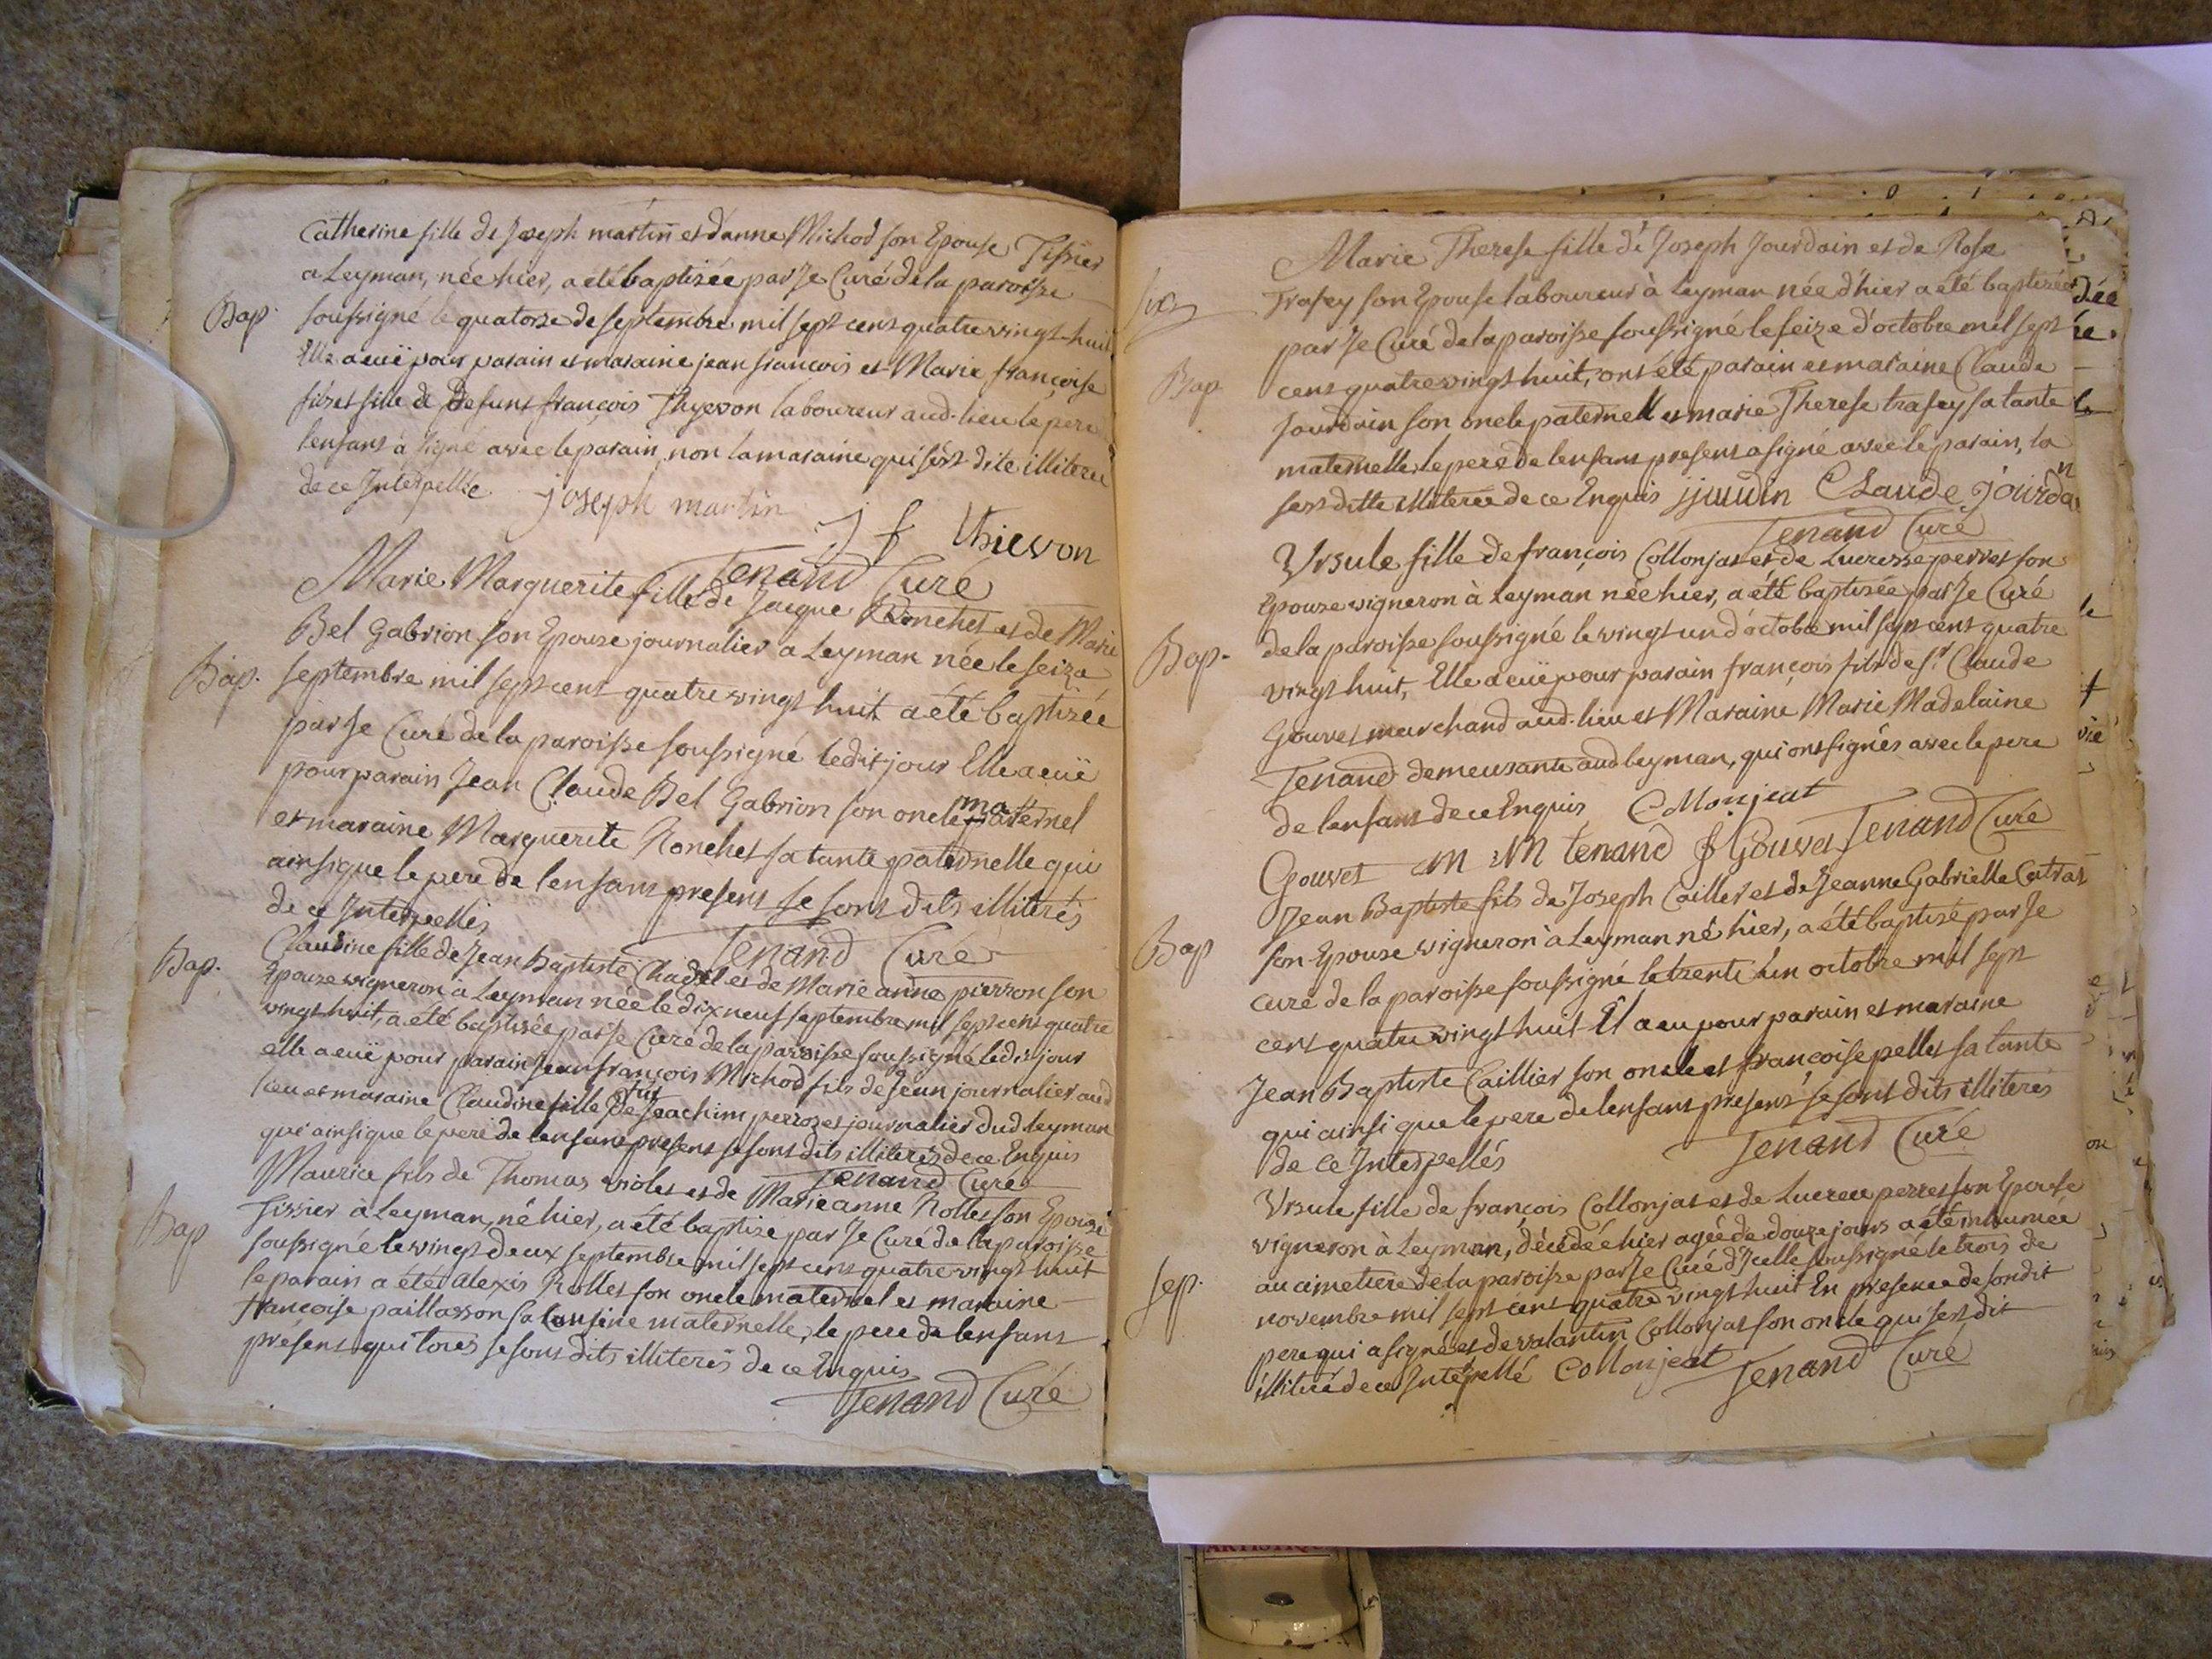 Catherine fille de Joseph martin et d'anne Michod son Epouse Tissier
a Leyman, née hier, a été baptisée par Je Curé de la paroisse
Bap. soussigné le quatorze de septembre mil sept cens quatre vingt huit
Elle a euë pour parain et maraine jean françois et Marie françoise
fils et fille de Defunt françois Thyevon laboureur aud. lieu le pere
lenfant à signé avec le parain, non la maraine qui sest dite illiterée
de ce Interpellée joseph martin
J f thievon
Tenand Curé
Marie Marguerite fille de Jacque Ronchet et de Marie
Bel Gabrion son Epouse journalier a Leyman née le seize
Bap. septembre mil sept cent quatre vingt huit a été baptisée
par Je Curé de la paroisse soussigné ledit jour Elle a euë
pour parain Jean Claude Bel Gabrion son oncle maternel
et maraine Marguerite Ronchet sa tante paternelle qui
ainsi que le pere de lenfant present se sont dits illiterés
de ce Interpellés
Tenand Curé
Bap. Claudine fille de Jean Baptiste Chagel et de Marie anne pierron son
Epouse vigneron à Leyman née le dix neuf septembre mil sept cent quatre
vingt huit, a été baptisée par Je Curé de la paroisse soussigné ledit jour
elle a euë pour parain Jean françois Michod fils de Jean journalier aud
lieu et maraine Claudine fille de Joachim perrozet journalier dud Leyman
qui ainsi que le pere de lenfant present se sont dits illiterés de ce Enquis
Tenand Curé
Maurice fils de Thomas violet et de Marie anne Rollet son Epouse
Bap Tissier à Leyman, né hier, a été baptisé par Je Curé de la paroisse
soussigné le vingt deux septembre mil sept cens quatre vingt huit
le parain a été alexis Rollet son oncle maternel et maraine
françoise paillasson sa Cousine maternelle, le pere de lenfant
présent qui tous se sont dits illiterés de ce Enquis
Tenand Curé
Marie Therese fille de Joseph Jourdain et de Rose
Trafey son Epouse laboureur à Leyman née d'hier a été baptisée
par Je Curé de la paroisse soussigné le seize d'octobre mil sept
Bap cens quatre vingt huit, ont été parain et maraine Claude
Jourdain son oncle paternell et marie Therese trafey sa tante
maternelle, le pere de lenfant present a signé avec le parain, la
sest ditte illiterée de ce Enquis Claude jourdan
Tenand Curé
Ursule fille de françois Collonjat et de Lucresse perret son
Epouse vigneron à Leyman née hier, a été baptisée par Je Curé
Bap. de la paroisse soussigné le vingt un d'octobre mil sept cens quatre
vingt huit, Elle a euë pour parain françois fils de Sr. Claude
Gouvet marchand aud. lieu et Maraine Marie Madelaine
Tenand demeurante aud Leyman, qui ont signés avec le pere
de lenfant de ce Enquis Collonjeat
Gouvet m M tenand f Gouvet Tenand Curé
Jean Baptiste fils de Joseph Caillet et de Jeanne Gabrielle
Bap son Epouse vigneron à Leyman né hier, a été baptisé par Je
curé de la paroisse soussigné le trente un octobre mil sept
cens quatre vingt huit Il a eu pour parain et maraine
Jean Baptiste Caillier son oncle et françoise pellet sa tante
qui ainsi que le pere de lenfant present se sont dits illiterés
de ce Interpellés
Tenand Curé
Ursule fille de françois Collonjat et de Lucrece perret son Epouse
vigneron à Leyman, décédée hier agée de douze jours a été inhumée
Sep. au cimetiere de la paroisse par Je Curé d'Jcelle soussigné le trois de
novembre mil sept cens quatre vingt huit En presence de sondit
pere qui a signé et de valantin Collonjat son oncle qui sest dit
illiteré de ce Interpellé Collonjeat Tenand Curé